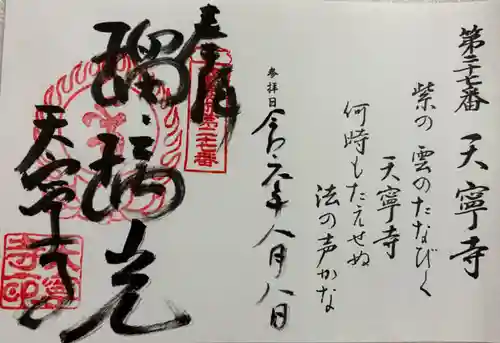 第二十七番 天寧寺
紫の雲のたなびく
天寧寺
何時もたえせぬ
法の声かな
参拝日
令和元年八月八日
奉拝
第二十七番
瑠璃光
天寧寺